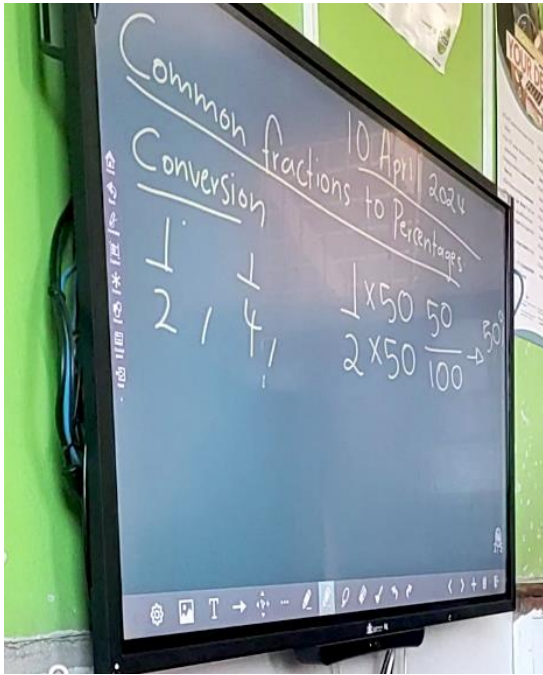 10 April 2024
Common fractions to Percentages
Conversion
1/2 , 1/4 ,
1 × 50 50
2 × 50 100 → 50%
YOUR
T